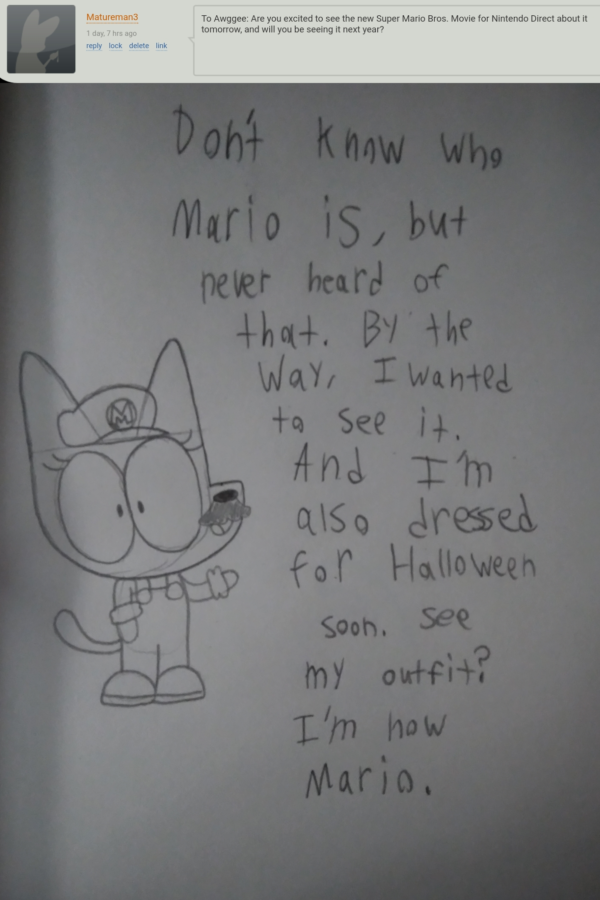 Matureman3
1 day, 7 hrs ago
reply lock delete link
To Awggee: Are you excited to see the new Super Mario Bros. Movie for Nintendo Direct about it
tomorrow, and will you be seeing it next year?
Don't know who
Mario is, but
never heard of
that. By the
Way, I wanted
to see it.
And I'm
also dressed
for Halloween
soon. See
my outfit?
I'm now
Mario.
M